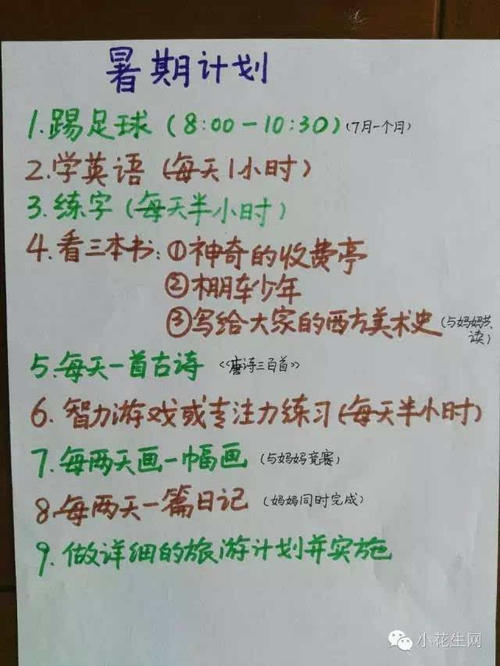 暑期计划
1.踢足球(8:00-10:30)(7月一个月)
2.学英语(每天1小时)
3.练字(每天半小时)
4.看三本书:①神奇的收费亭
②棚车少年
③写给大家的西方美术史(与妈妈共读)
5.每天一首古诗《唐诗三百首》
6.智力游戏或专注力练习(每天半小时)
7.每两天画一幅画(与妈妈竞赛)
8.每两天一篇日记(妈妈同时完成)
9.做详细的旅游计划并实施
小花生网